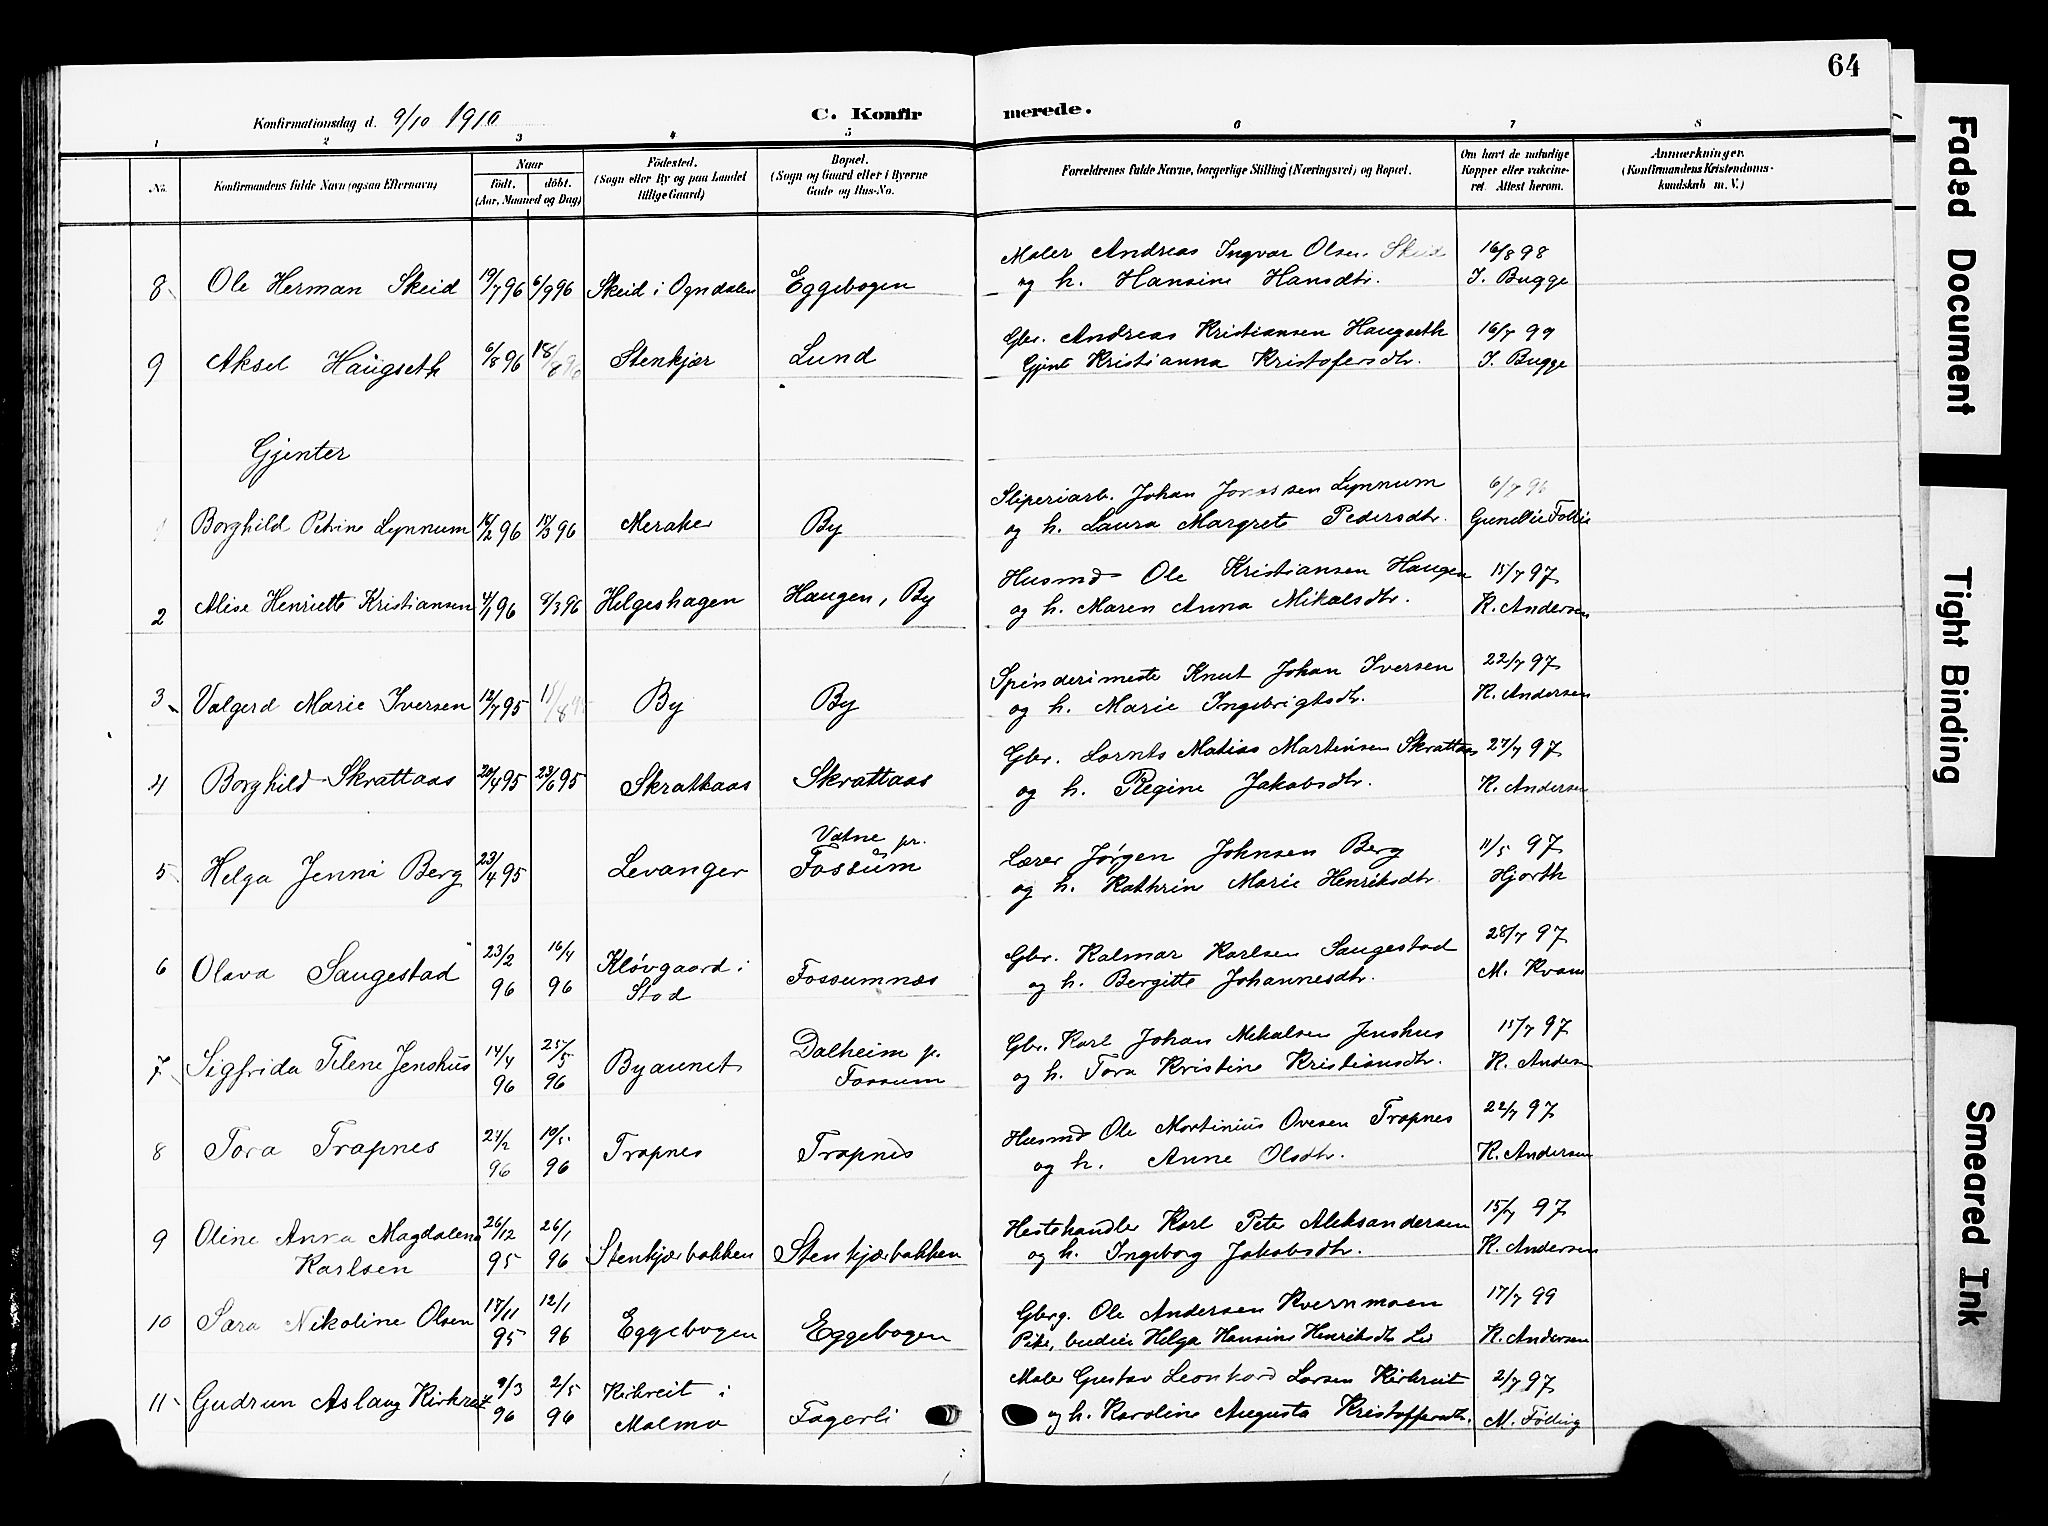 64
Konfirmationsdag d. 9/10 1910
C. Konfirmerede.
1 2 3 4 5 6 7 8
No. Konfirmandens fulde Navn (ogsaa Efternavn) Naar födt. döbt. (Aar, Maaned og Dag) Födested. (Sogn eller By og paa Landet tillige Gaard) Bopæl. (Sogn og Gaard eller i Byerne Gade og Hus-No. Forældrenes fulde Navne, borgerlige Stilling (Næringsvei) og Bopæl. Om havt de naturlige Kopper eller vakcineret. Attest herom. Anmærkninger. (Konfirmandens Kristendomskundskab m. V.)
8 Ole Herman Skeid 19/7 96 6/9 96 Skeid i Ogndalen Eggebogen Maler Andreas Ingvar Olsen Skeid 16/8 98
og h. Hansine Hansdtr. I. Bugge
9 Aksel Haugseth 6/8 96 18/8 96 Stenkjær Lund Gbr. Andreas Kristiansen Haugseth 16/7 99
Gjent Kristianna Kristofersdtr. I. Bugge
Gjenter
1 Borghild Petrine Lynnum 16/2 96 15/3 96 Meraker By Sliperiarb. Johan Jonassen Lynnum 6/7 96
og h. Laura Margrete Pedersdtr.
2 Alise Henriette Kristiansen 4/1 96 8/3 96 Helgeshagen Haugen, By Husmd Ole Kristiansen Haugen 15/7 97
og h. Maren Anna Mikalsdtr. K. Andersen
3 Valgerd Marie Iversen 12/7 95 11/8 95 By By Spinderimeste Knut Johan Iversen 22/7 97
og h. Marie Ingebrigtsdtr. K. Andersen
4 Borghild Skrattaas 20/4 95 23/6 95 Skrattaas Skrattaas Gbr. Lornts Matias Martinsen Skrattaas 27/7 97
og h. Regine Jakobsdtr. K. Andersen
5 Helga Jenni Berg 23/4 95 Levanger Vatne pr. Fossum Lærer Jørgen Johnsen Berg 11/5 97
og h. Kathrin Marie Henriksdtr. Hjorth
6 Olava Saugestad 23/2 96 16/4 96 Kløvgaard i Stod Fossumnæs Gbr. Kalmar Karlsen Saugestad 28/7 97
og h. Bergitte Johannesdtr. M. Kvam
7 Sigfrida Tilene Jenshus 14/4 96 25/5 96 Byaunet Dalheim p. Fossum Gbr. Karl Johan Mikalsen Jenshus 15/7 97
og h. Tora Kristine Kristiansdtr. K. Andersen
8 Tora Trapnes 24/2 96 10/5 96 Trapnes Trapnes Husmd Ole Martinius Ovesen Trapnes 22/7 97
og h. Anne Olsdtr. K. Andersen
9 Oline Anna Magdalena Karlsen 26/12 95 26/1 96 Stenkjærbakken Stenkjærbakken Hestehandler Karl Peter Aleksandersen 15/7 97
og h. Ingeborg Jakobsdtr. K. Andersen
10 Sara Nikoline Olsen 17/11 95 12/1 96 Eggebogen Eggebogen Gbrg. Ole Andersen Kvernmoen 17/7 99
Pike, budeie Helga Hansine Henriksdtr K. Andersen
11 Gudrun Aslaug Kirkreit 9/3 96 2/5 96 Kirkreit i Malmo Fagerli Maler Gustav Leonhard Larsen Kirkreit 2/7 97
og h. Karoline Augusta Kristoffersdtr. M. Følling
Faded Document
Tight Binding
Smeared Ink